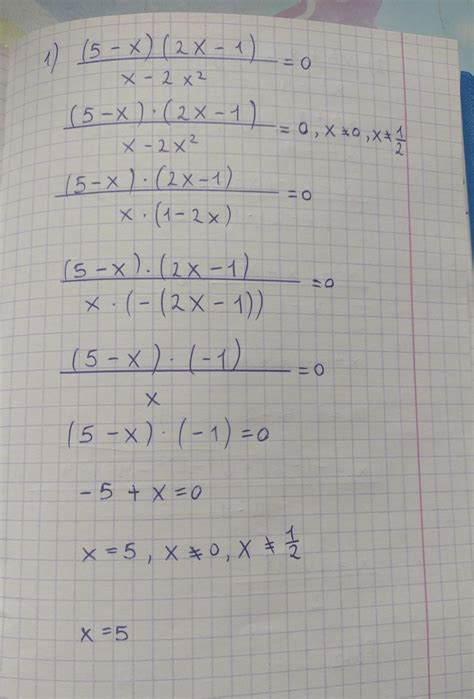 1) (5-x)(2x-1)/(x-2x²) = 0
(5-x)·(2x-1)/(x-2x²) = 0, x≠0, x≠1/2
(5-x)·(2x-1)/(x·(1-2x)) = 0
(5-x)·(2x-1)/(x·(-(2x-1))) = 0
(5-x)·(-1)/x = 0
(5-x)·(-1)=0
-5+x=0
x=5, x≠0, x≠1/2
x=5